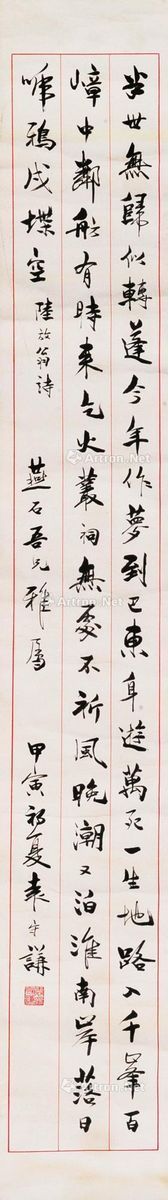 半世無歸似轉蓬今年作夢到巴東身遊萬死一生地路入千峯百
嶂中鄰船有時來乞火叢祠無處不祈風晚潮又泊淮南岸落日
啼鴉戍堞空 陸放翁詩 燕石吾兄雅屬 甲寅初夏袁守謙
Artron.Net